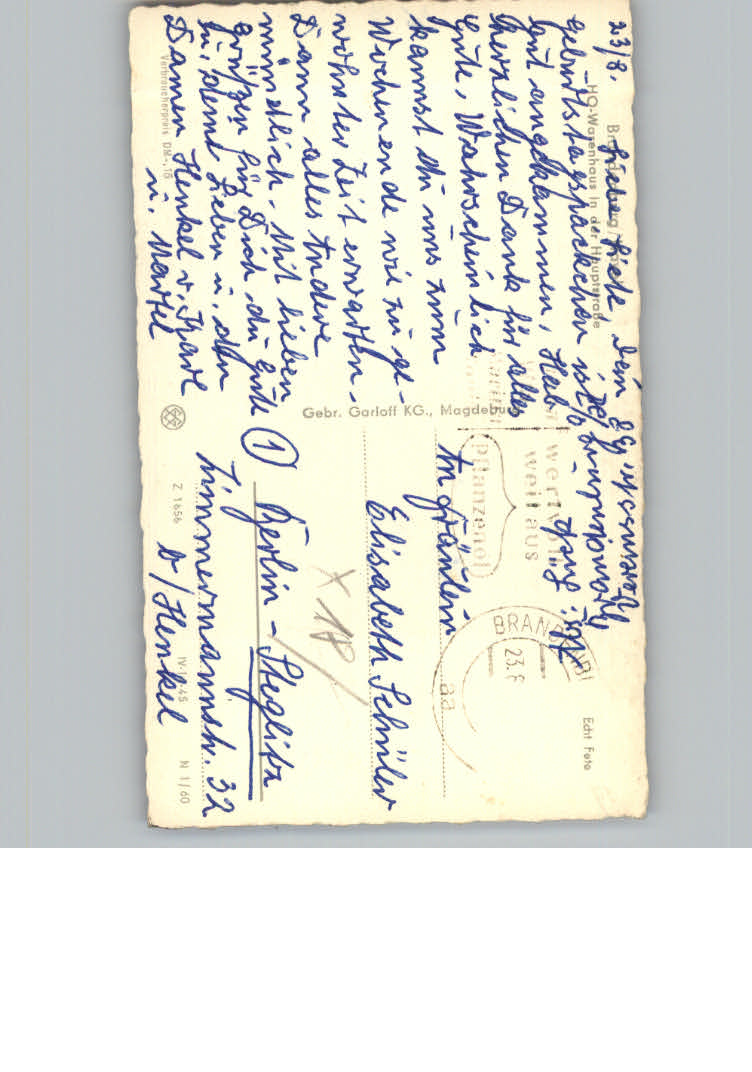 Brandenburg/
HO-Warenhaus in der Hauptstraße
23/8.
Liebe Liesel, Dein
Geburtstagspäckchen ist
gut angekommen, Hab
herzlichen Dank für alles
Gute. Wahrscheinlich
kannst du uns zum
Wochenende wie zu ge-
wohnter Zeit erwarten.
Dann alles Andere
mündlich. Mit lieben
Grüßen für Dich du Gute
u. den
Damen Henkel u.
u.
Verbraucherpreis DM -,15
Gebr. Garloff KG., Magdeburg
wertvoll
weil aus
pflanzenöl
BRANDENBU
23.8
aa
Echt Foto
An Fräulein
Elisabeth Schüler
X 18
① Berlin - Steglitz
Zimmermannstr. 32
b/Henkel
Z 1656
IV-14-45
N 1/60